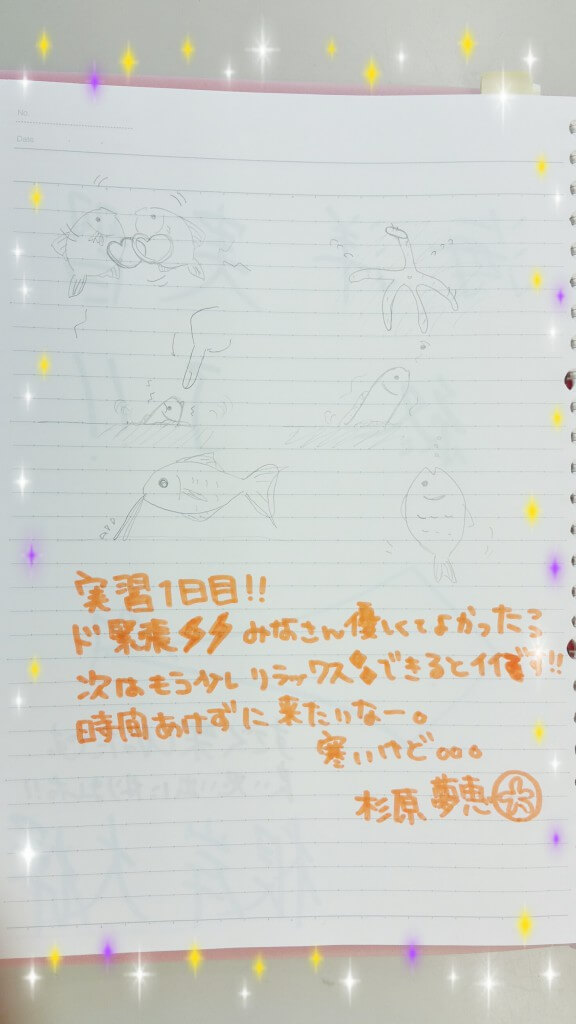 No.
Date
実習1日目!!
ド緊張 みなさん優しくてよかったぁ
次はもう少しリラックスできるとイイなぁ!!
時間あけずに来たいなー。
寒いけど。。。
杉原 夢恵